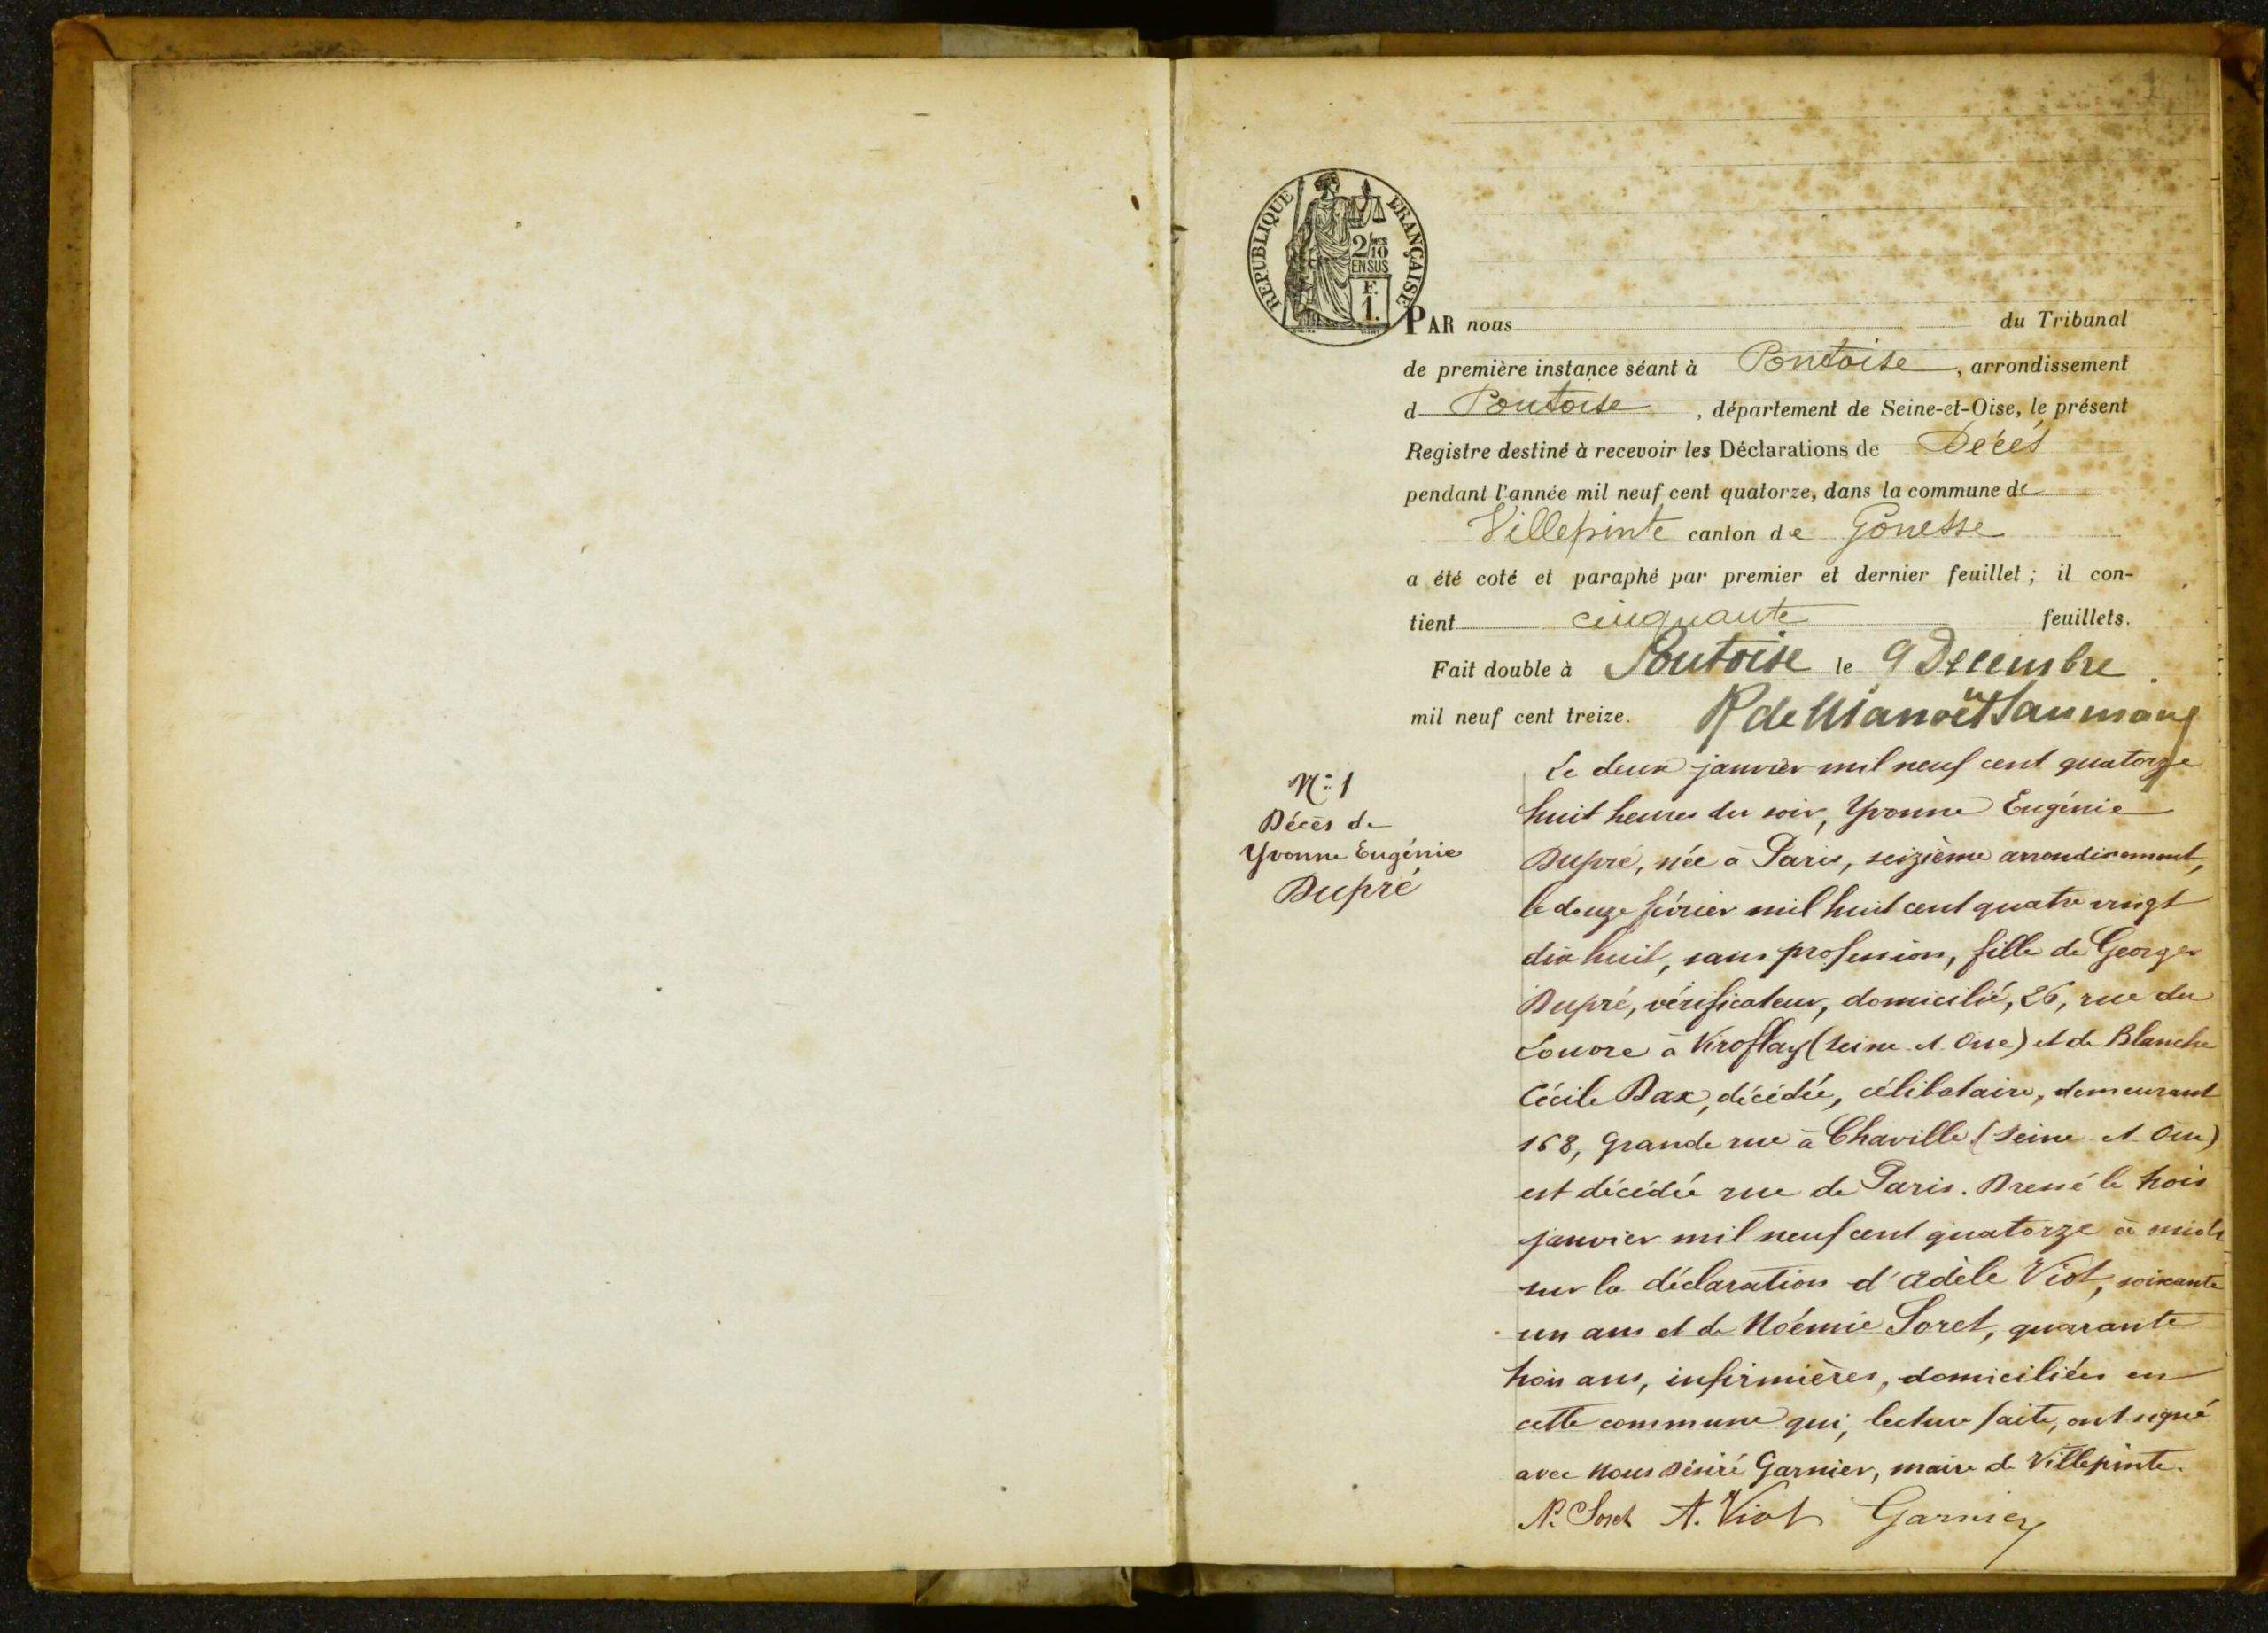 RÉPUBLIQUE FRANÇAISE
2/10
EN SUS
F.
1.
PAR nous du Tribunal
de première instance séant à Pontoise, arrondissement
d Pontoise, département de Seine-et-Oise, le présent
Registre destiné à recevoir les Déclarations de Décès
pendant l'année mil neuf cent quatorze, dans la commune de
Villepinte canton de Gonesse
a été coté et paraphé par premier et dernier feuillet ; il con-
tient cinquante feuillets.
Fait double à Pontoise le 9 Décembre
mil neuf cent treize.
N° 1
Décès de
Yvonne Eugénie
Dupré
Le deux janvier mil neuf cent quatorze
huit heures du soir, Yvonne Eugénie
Dupré, née à Paris, seizième arrondissement,
le douze février mil huit cent quatre vingt
dix huit, sans profession, fille de Georges
Dupré, vérificateur, domicilié, 26, rue du
Louvre à Viroflay (Seine et Oise) et de Blanche
Cécile Dax, décédée, célibataire, demeurant
168, Grande rue à Chaville (Seine et Oise)
est décédée rue de Paris. Dressé le trois
janvier mil neuf cent quatorze à midi
sur la déclaration d'Adèle Viot, soixante
un ans et de Noémie Soret, quarante
trois ans, infirmières, domiciliées en
cette commune qui, lecture faite, ont signé
avec Nous Désiré Garnier, maire de Villepinte.
N. Soret A. Viot Garnier